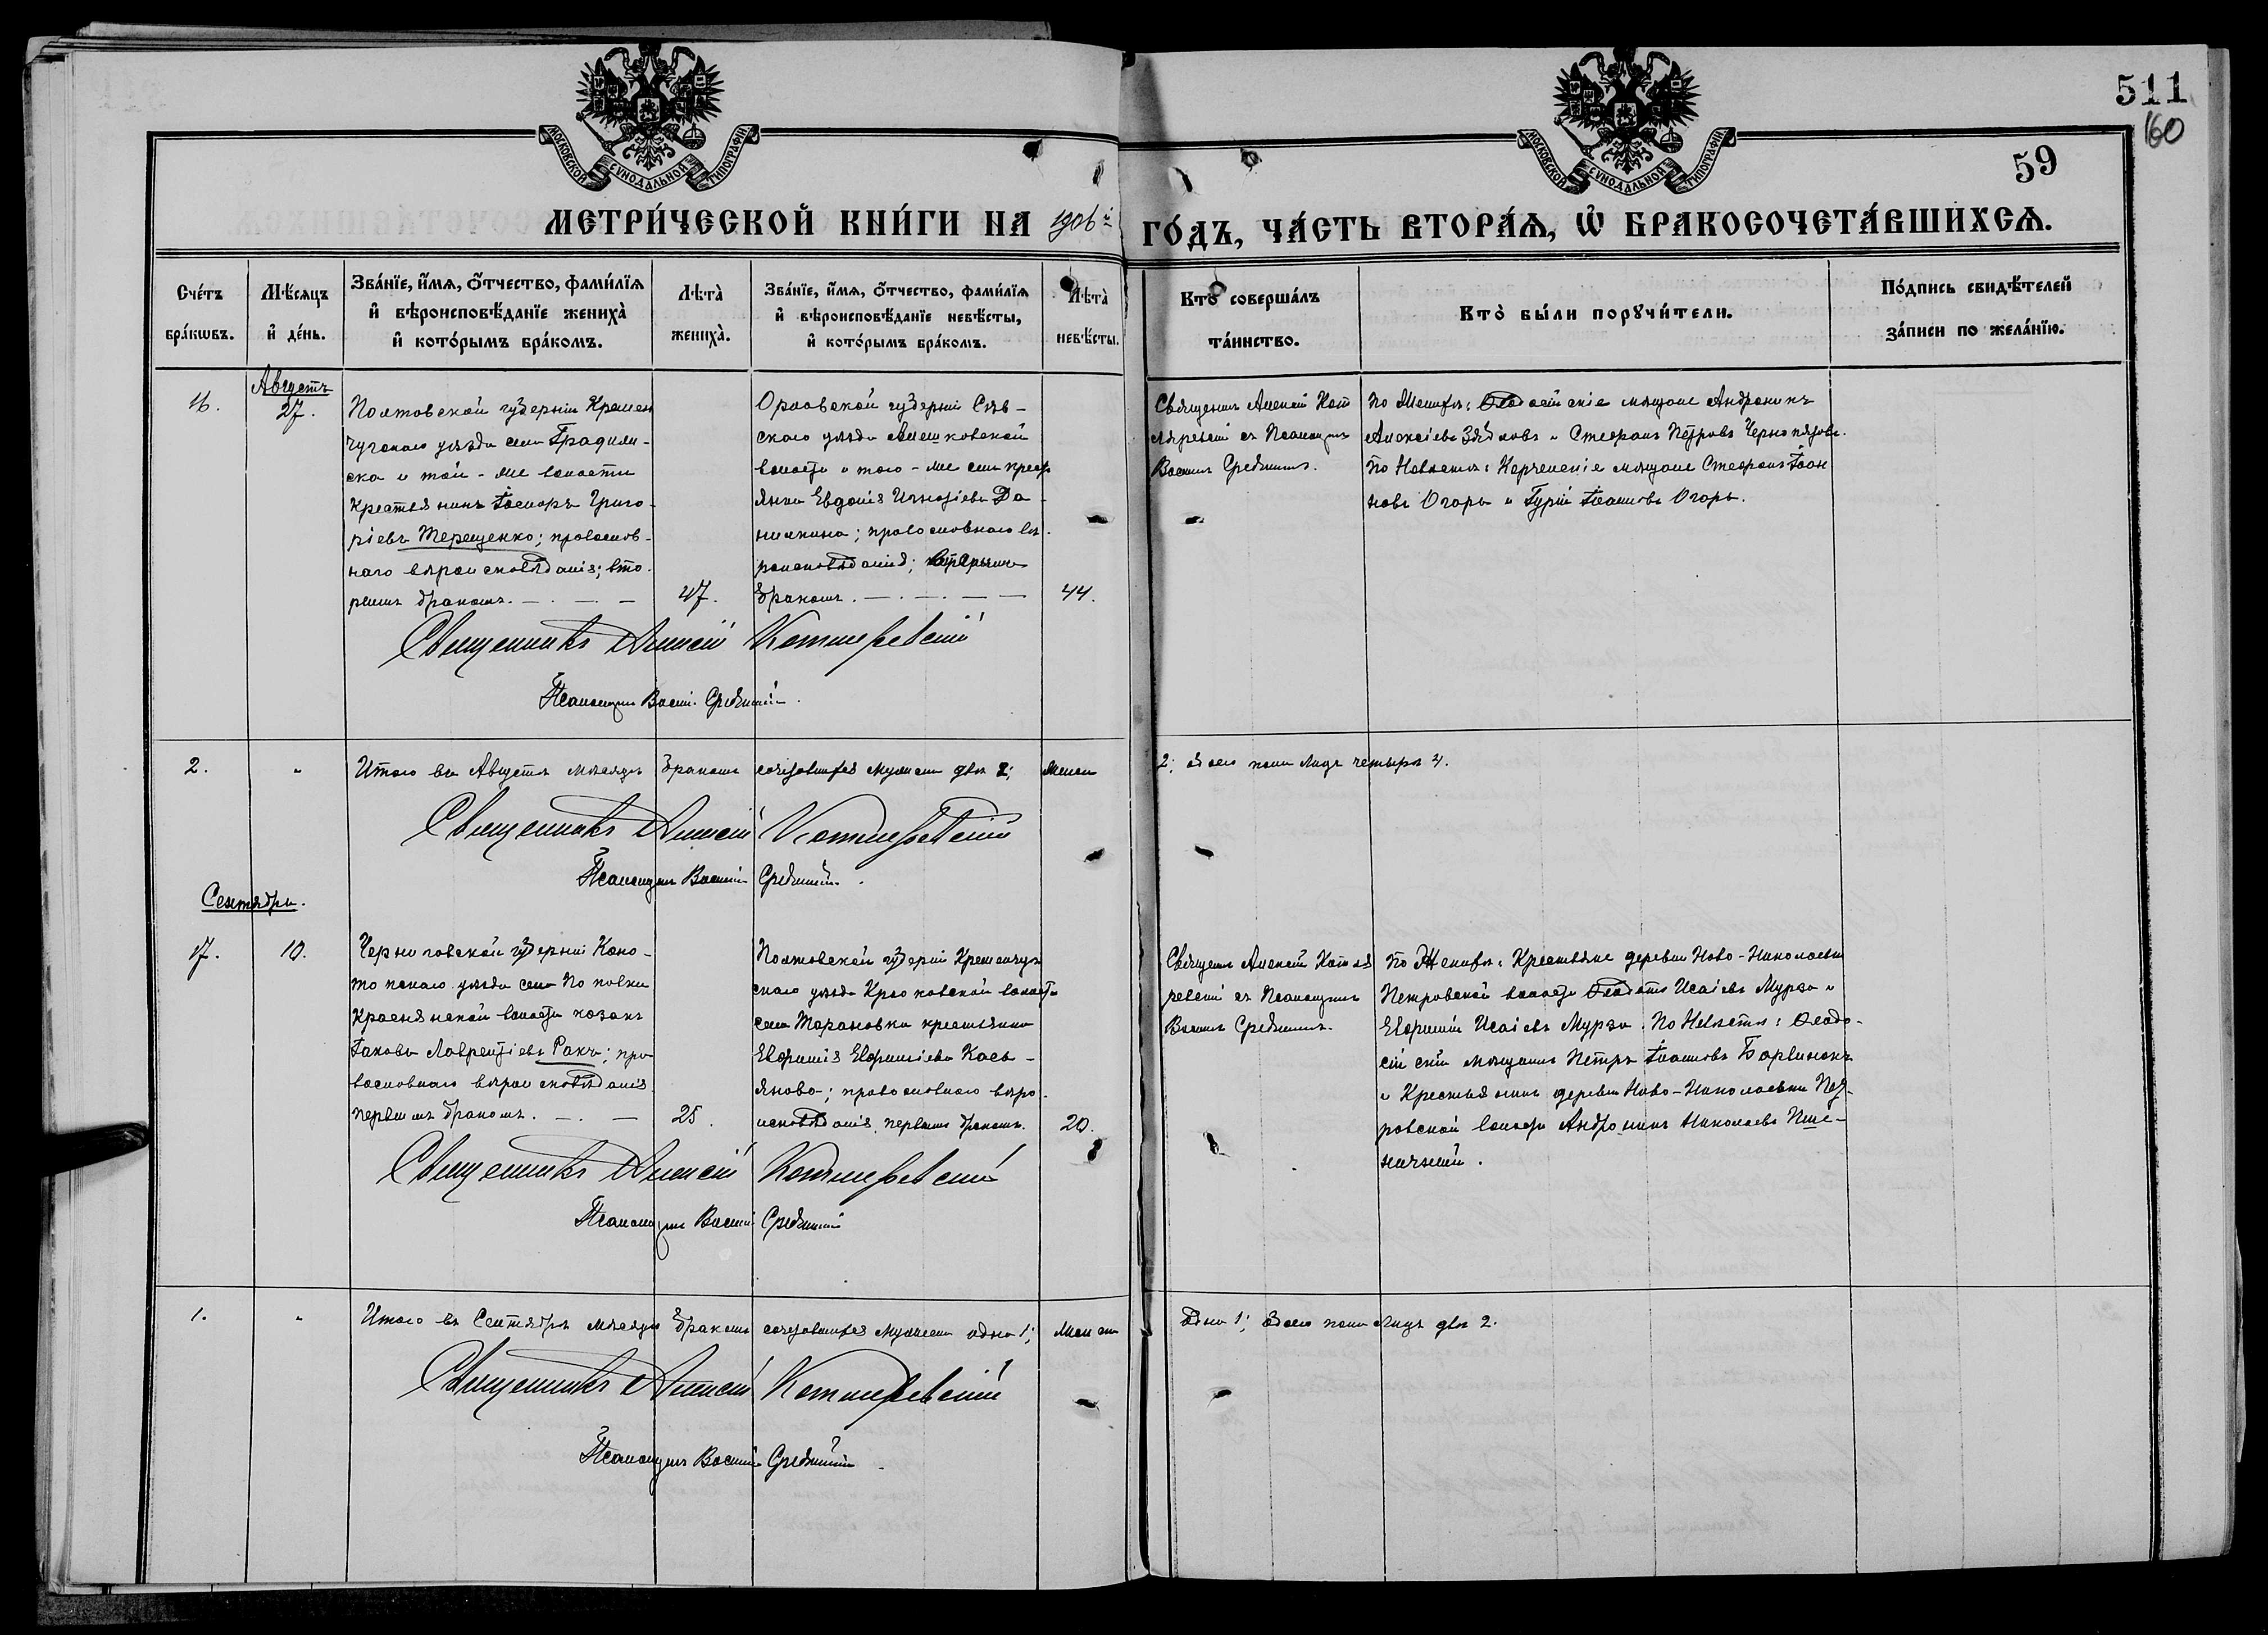 511
160
59
МОСКОВСКОЙ СѴНОДАЛЬНОЙ ТИПОГРАФІИ
МОСКОВСКОЙ СѴНОДАЛЬНОЙ ТИПОГРАФІИ
МЕТРИ́ЧЕСКОЙ КНИ́ГИ НА 1906й ГО́ДЪ, ЧА́СТЬ ВТОРА́Ѧ, Ѡ҆ БРАКОСОЧЕТА́ВШИХСѦ.
Сче́тъ
бра́кѡвъ.
Мѣ́сѧцъ
и҆ де́нь.
Зва́нїе, и҆́мѧ, ѻ҆́тчество, фами́лїѧ
и҆ вѣроисповѣ́данїе жениха̀
и҆ кото́рымъ бра́комъ.
Лѣта̀
жениха̀.
Зва́нїе, и҆́мѧ, ѻ҆́тчество, фами́лїѧ
и҆ вѣроисповѣ́данїе невѣ́сты,
и҆ кото́рымъ бра́комъ.
Лѣта̀
невѣ́сты.
Кто̀ соверша́лъ
та́инство.
Кто̀ бы́ли порꙋчи́тели.
По́дпись свидѣ́телей
за́писи по жела́нїю.
Августъ
16.
27.
Полтовской губерніи Кремен
чугскаго уѣзда села Градиж-
ска и той-же волости
Крестьянинъ Григо-
ріевъ Терещенко; провослов-
наго вѣроисповѣданія; вто-
рымъ бракомъ.
47.
Орловской губерніи Сѣв-
скаго уѣзда
волости и того-же села крест
янка Евдокія Да-
нилкина; провословнаго вѣ-
роисповѣданія;
бракомъ.
44.
Священникъ Алексій Кот
ляревскій съ Псаломщик
Василіемъ
По Жениху: Ѳеодосійскіе мѣщане Андроникъ
Алексіевъ и Стефанъ Петровъ
По Невѣстѣ: Керченскіе мѣщане Стефанъ Іоан
новъ Огорь и Гурій Іоанновъ Огорь.
Священникъ Алексій Котляревскій
Псаломщикъ Василій
2.
"
Итого въ Августѣ мѣсяцѣ бракомъ сочетовшихся мужеска два 2; женска
2; обоего пола лицъ четыре 4.
Священникъ Алексій Котляревскій
Псаломщикъ Василій
Сентябрь.
17.
10.
Черниговской губерніи Коно-
топскаго уѣзда села Поповки
Краснянской волости козакъ
Іаковъ Лаврентіевъ Ракъ; про
вословнаго вѣроисповѣданія
первымъ бракомъ.
25.
Полтовской губерніи Кременчуг
скаго уѣзда волости
села Тарановки крестьянка
Евфимія Евфиміева Кась-
янова; провословнаго вѣро
исповѣданія, первымъ бракомъ.
20.
Священникъ Алексій Котля
ревскій съ Псаломщикомъ
Василіемъ
По Жениху: Крестьяне деревни Ново-Николаевки
Петровской волости Исаіевъ Мурза и
Евфимій Исаіевъ Мурза. По Невѣстѣ: Ѳеодо-
сійскій мѣщанинъ Петръ Іоанновъ Барвинокъ
и Крестьянинъ деревни Ново-Николаевки Пет-
ровской волости Андроникъ Николаевъ Пше-
ничный.
Священникъ Алексій Котляревскій
Псаломщикъ Василій
1.
"
Итого въ Сентябрѣ мѣсяцѣ бракомъ сочетовшихся мужеска одно 1; женска
одна 1; обоего пола лицъ два 2.
Священникъ Алексій Котляревскій
Псаломщикъ Василій